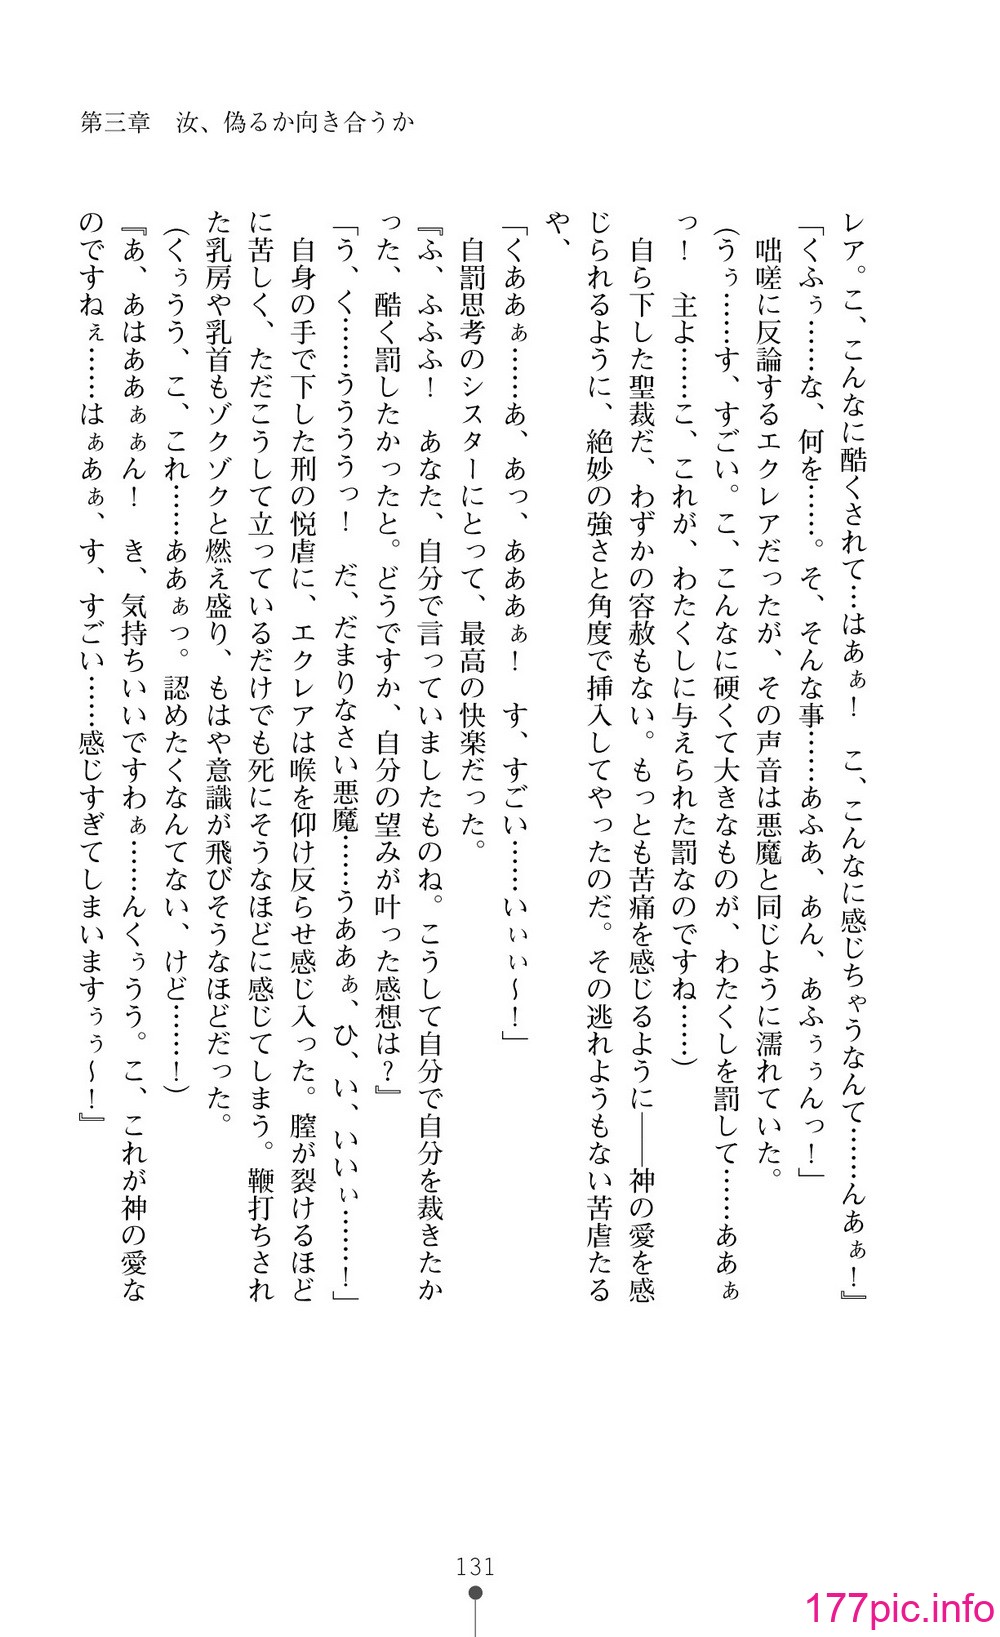 第三章　汝、偽るか向き合うか
レア。こ、こんなに酷くされて…はあぁ！　こ、こんなに感じちゃうなんて……んあぁ！』
「くふぅ……な、何を……。そ、そんな事……あふあ、あん、あふぅぅんっ！」
　咄嗟に反論するエクレアだったが、その声音は悪魔と同じように濡れていた。
（うぅ……す、すごい。こ、こんなに硬くて大きなものが、わたくしを罰して……ああぁ
っ！　主よ……こ、これが、わたくしに与えられた罰なのですね……）
　自ら下した聖裁だ、わずかの容赦もない。もっとも苦痛を感じるように――神の愛を感
じられるように、絶妙の強さと角度で挿入してやったのだ。その逃れようもない苦虐たる
や、
「くああぁ……あ、あっ、あああぁ！　す、すごい……いぃぃ～！」
　自罰思考のシスターにとって、最高の快楽だった。
『ふ、ふふふ！　あなた、自分で言っていましたものね。こうして自分で自分を裁きたか
った、酷く罰したかったと。どうですか、自分の望みが叶った感想は？』
「う、く……うううっ！　だ、だまりなさい悪魔……うああぁ、ひ、い、いいぃ……！」
　自身の手で下した刑の悦虐に、エクレアは喉を仰け反らせ感じ入った。膣が裂けるほど
に苦しく、ただこうして立っているだけでも死にそうなほどに感じてしまう。鞭打ちされ
た乳房や乳首もゾクゾクと燃え盛り、もはや意識が飛びそうなほどだった。
（くぅうう、こ、これ……ああぁっ。認めたくなんてない、けど……！）
『あ、あはああぁぁん！　き、気持ちいいですわぁ……んくぅうう。こ、これが神の愛な
のですねぇ……はぁあぁ、す、すごい……感じすぎてしまいますぅぅ～！』
131
177pic.info